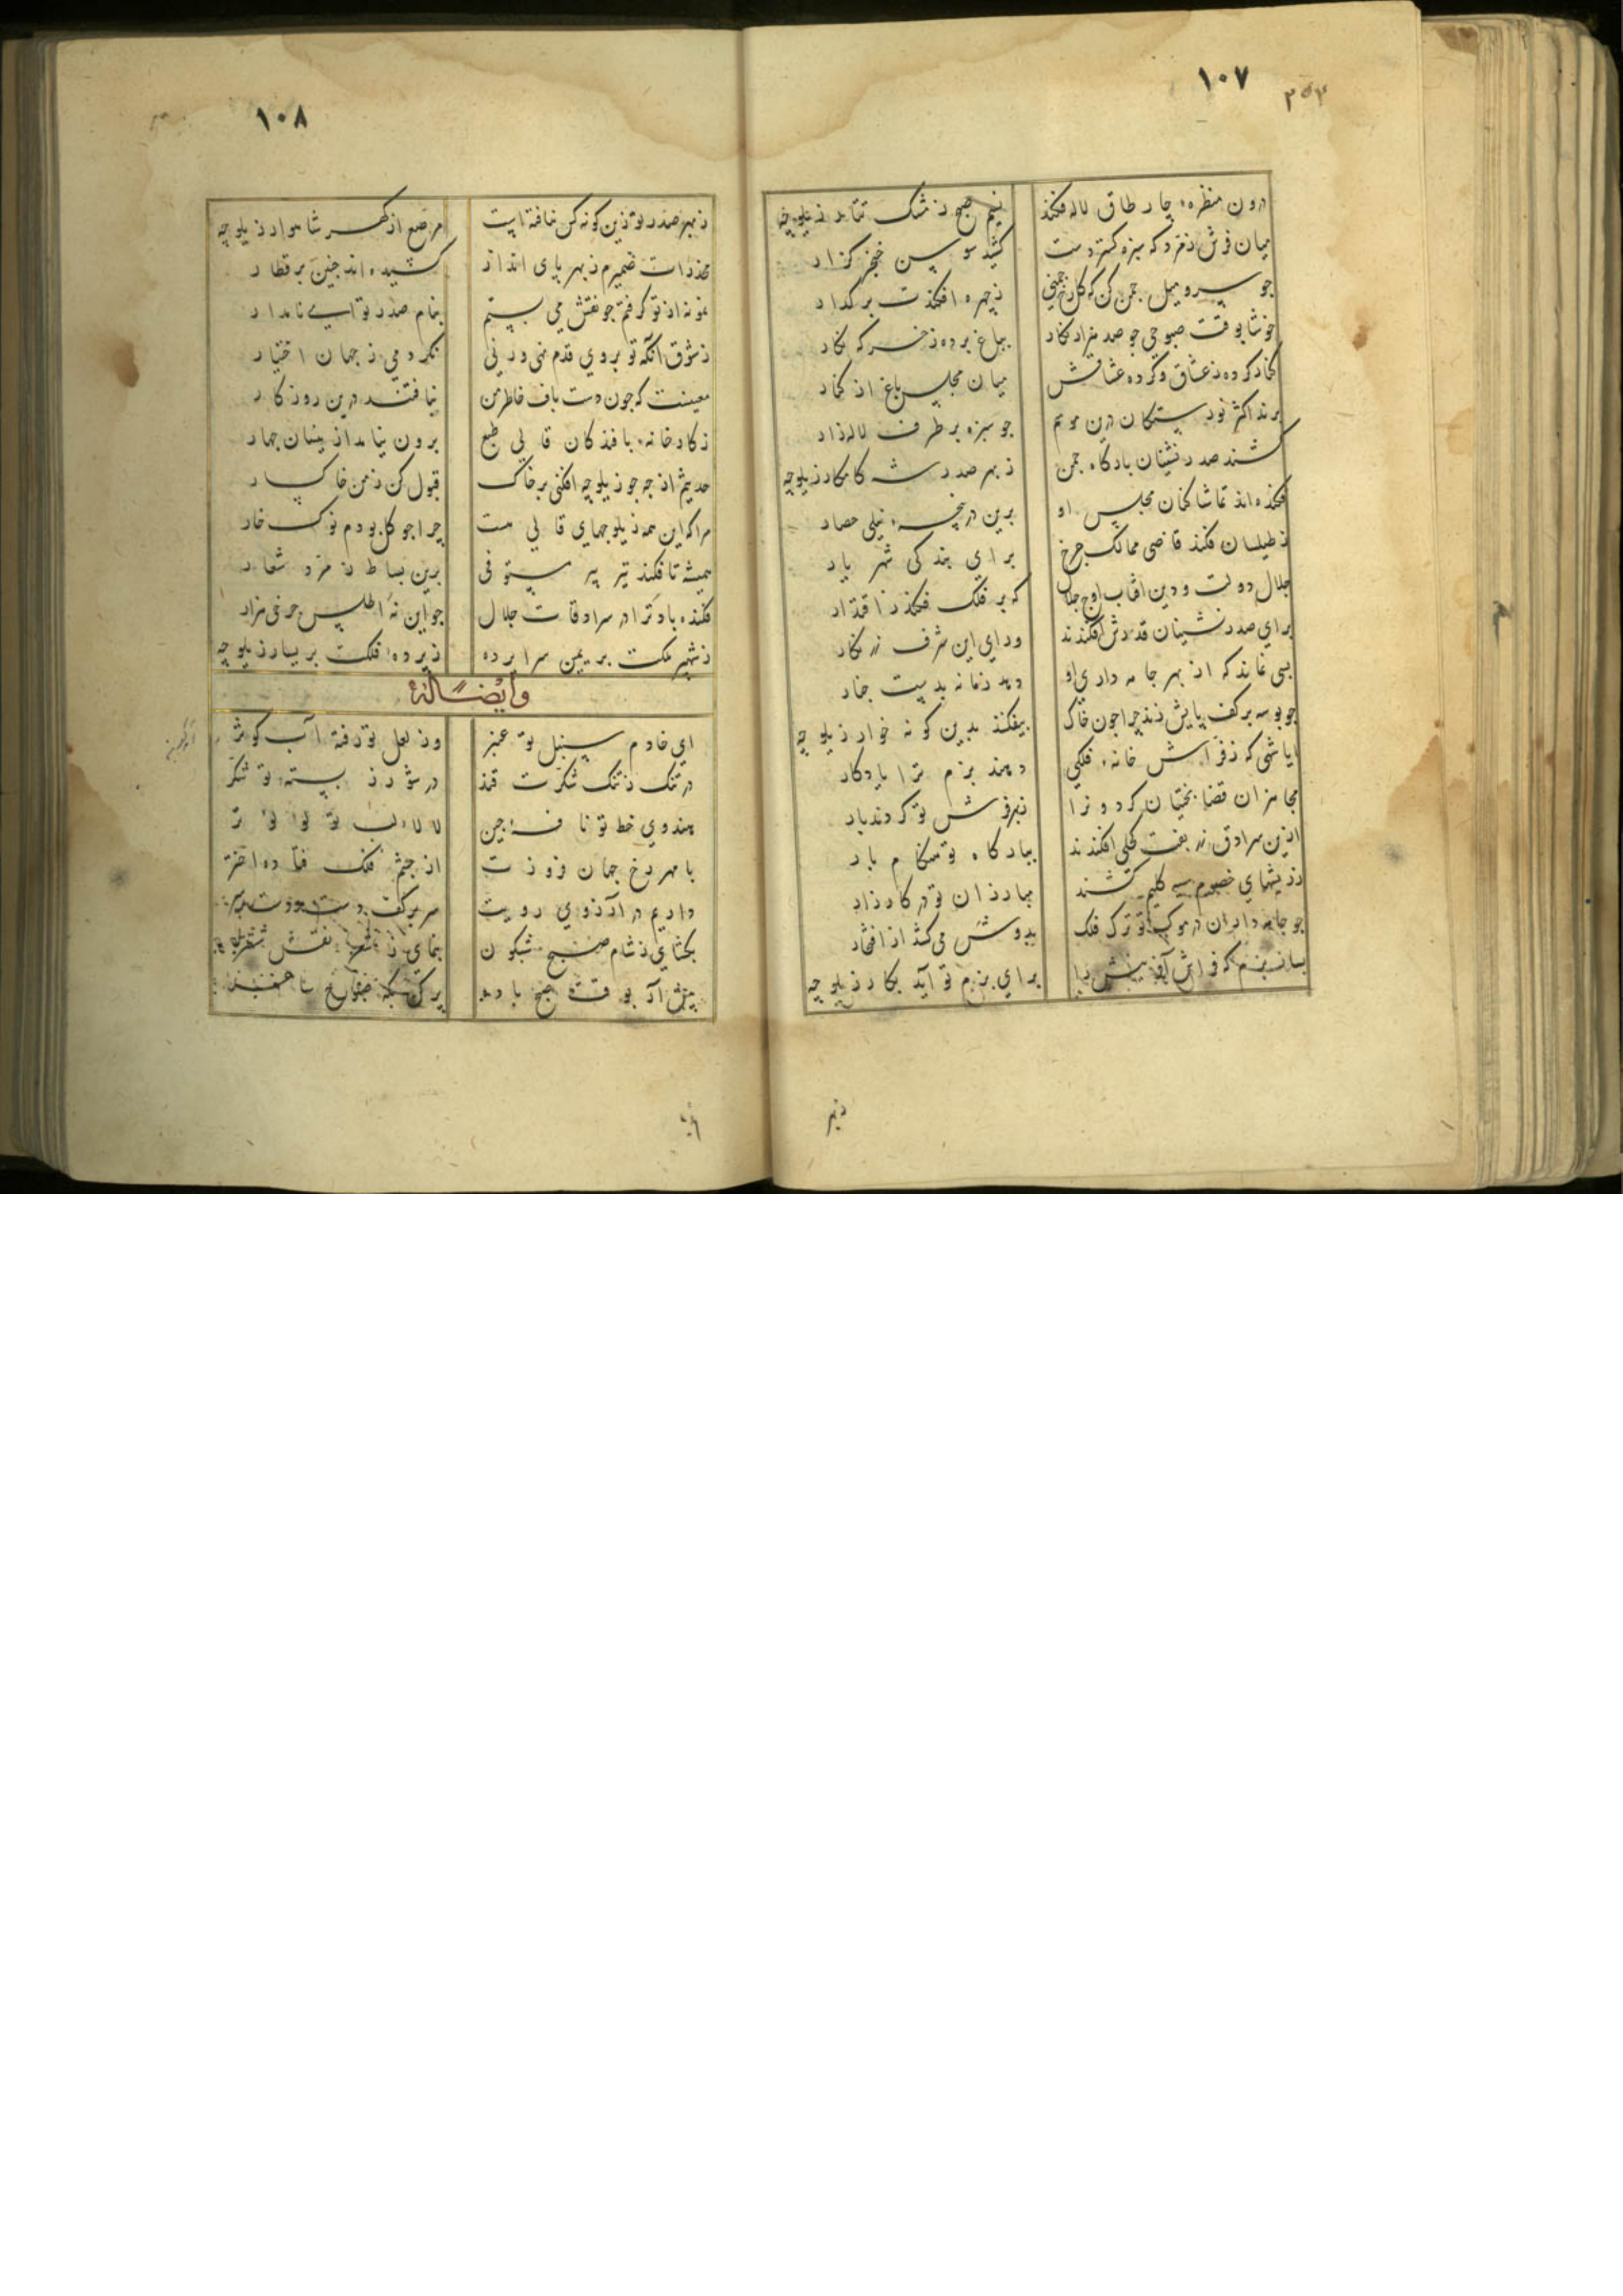 ۱۰۷
درون منظره چار طاق لاله فکند
نسیم صبح ز مشک تتار زیلوچه
میان فرش زمرد که سبزه گسترده است
کشید سوسن خنجر گزار
جو سرو میل جمن کن که کل رخ جمنی
ز چهره افکندت بر کدار
خوشا بوقت صبوحی جو صد هزار نکار
بباغ برده ز خرکه نکار
کنار کرده ز عشاق و کرده عشاقش
میان مجلس باغ از کنار
برند اکثر نورستکان درین موسم
جو سبزه بر طرف لاله زار
کشند صدر نشینان بارکاه جمن
ز بهر صدر شه کامکار زیلوچه
فکنده اند تماشا کنان مجلس او
برین دریچه نیلی حصار
ز طیلسان فکند قاضی ممالک جرخ
برای بندکی شهریار
جلال دولت و دین آفتاب اوج جلال
که بر فلک فکند ز اقتدار
برای صدر نشینان قدرش افکندند
ورای این شرف زرنکار
بسی نماند که از بهر جامه داری او
دهد زمانه بدست جنار
جو بوسه بر کف پایش زند چرا جون خاک
بیفکند بدین کونه خوار زیلوچه
ایا شهی که ز فراش خانه فلکی
دهند بزم ترا یادکار
مجاهزان قضا بختیان کردون را
ز بهر فرش تو کردند بار
ازین سرادق زربفت کلی افکندند
ببارکاه تو هنکام بار
ز ریشهای خصوم سیه کلیم کشند
مبارزان تو در کارزار
جو جامه داران در موکب تو ترک فلک
بدوش می کشد از افتخار
بساز بزم که فراش آفرینش را
برای بزم تو آید بکار زیلوچه
۱۰۸
ز بهر صدر تو زین کونه کس نبافته است
مرصع از کهر شاهوار زیلوچه
مخدرات ضمیرم ز بهر پای انداز
کشیده اند جنین بر قطار
نمونه از تو کرفتم جو نقش می بستم
بنام صدر تو ای نامدار
ز شوق آنکه تو بر وی قدم نهی ورنی
نکردمی ز جهان اختیار
معینست که جون دست باف خاطر من
نیافتند درین روزکار
ز کارخانه بافندکان قالی طبع
برون نیامد ازینسان جهار
حدیثم از چه جو زیلوچه افکنی بر خاک
قبول کن ز من خاکسار
مرا که این همه زیلوچهای قالی هست
چرا جو کل بودم نوک خار
همیشه تا فکند تیر پیر مستوفی
برین بساط زمرد شعار
فکنده باد ترا در سرادقات جلال
جو این نه اطلس حرفی هزار
ز شهپر ملکت بر یمین سرا برده
ز پرده فلکت بر یسار زیلوچه
وایضاً له
ای خادم سنبل تو عنبر
وز لعل تو رفته آب کوثر
در تنک ز تنک شکرت قند
در شور ز پسته تو شکر
هندوی خط تو نافه جین
لالای لب تو لولوی تر
با مهر رخ جهان فروزت
از جشم فلک فتاده اختر
داریم در آرزوی رویت
سر بر کف دست و دست بر سر
بکشای ز شام صبح شبکون
پیش آر بوقت صبح باده